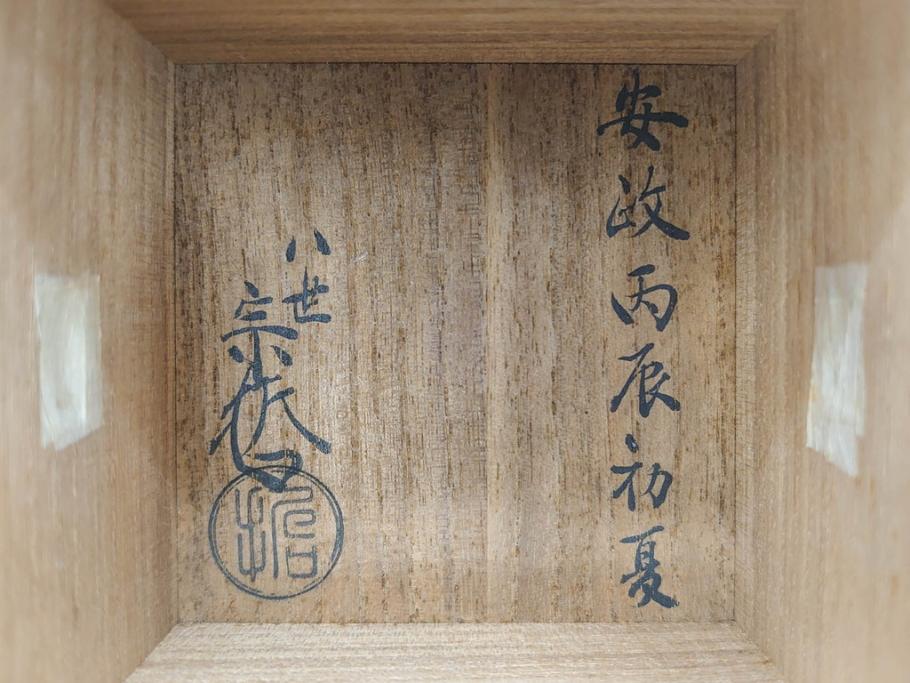 安政丙辰初夏
八世
宗哲